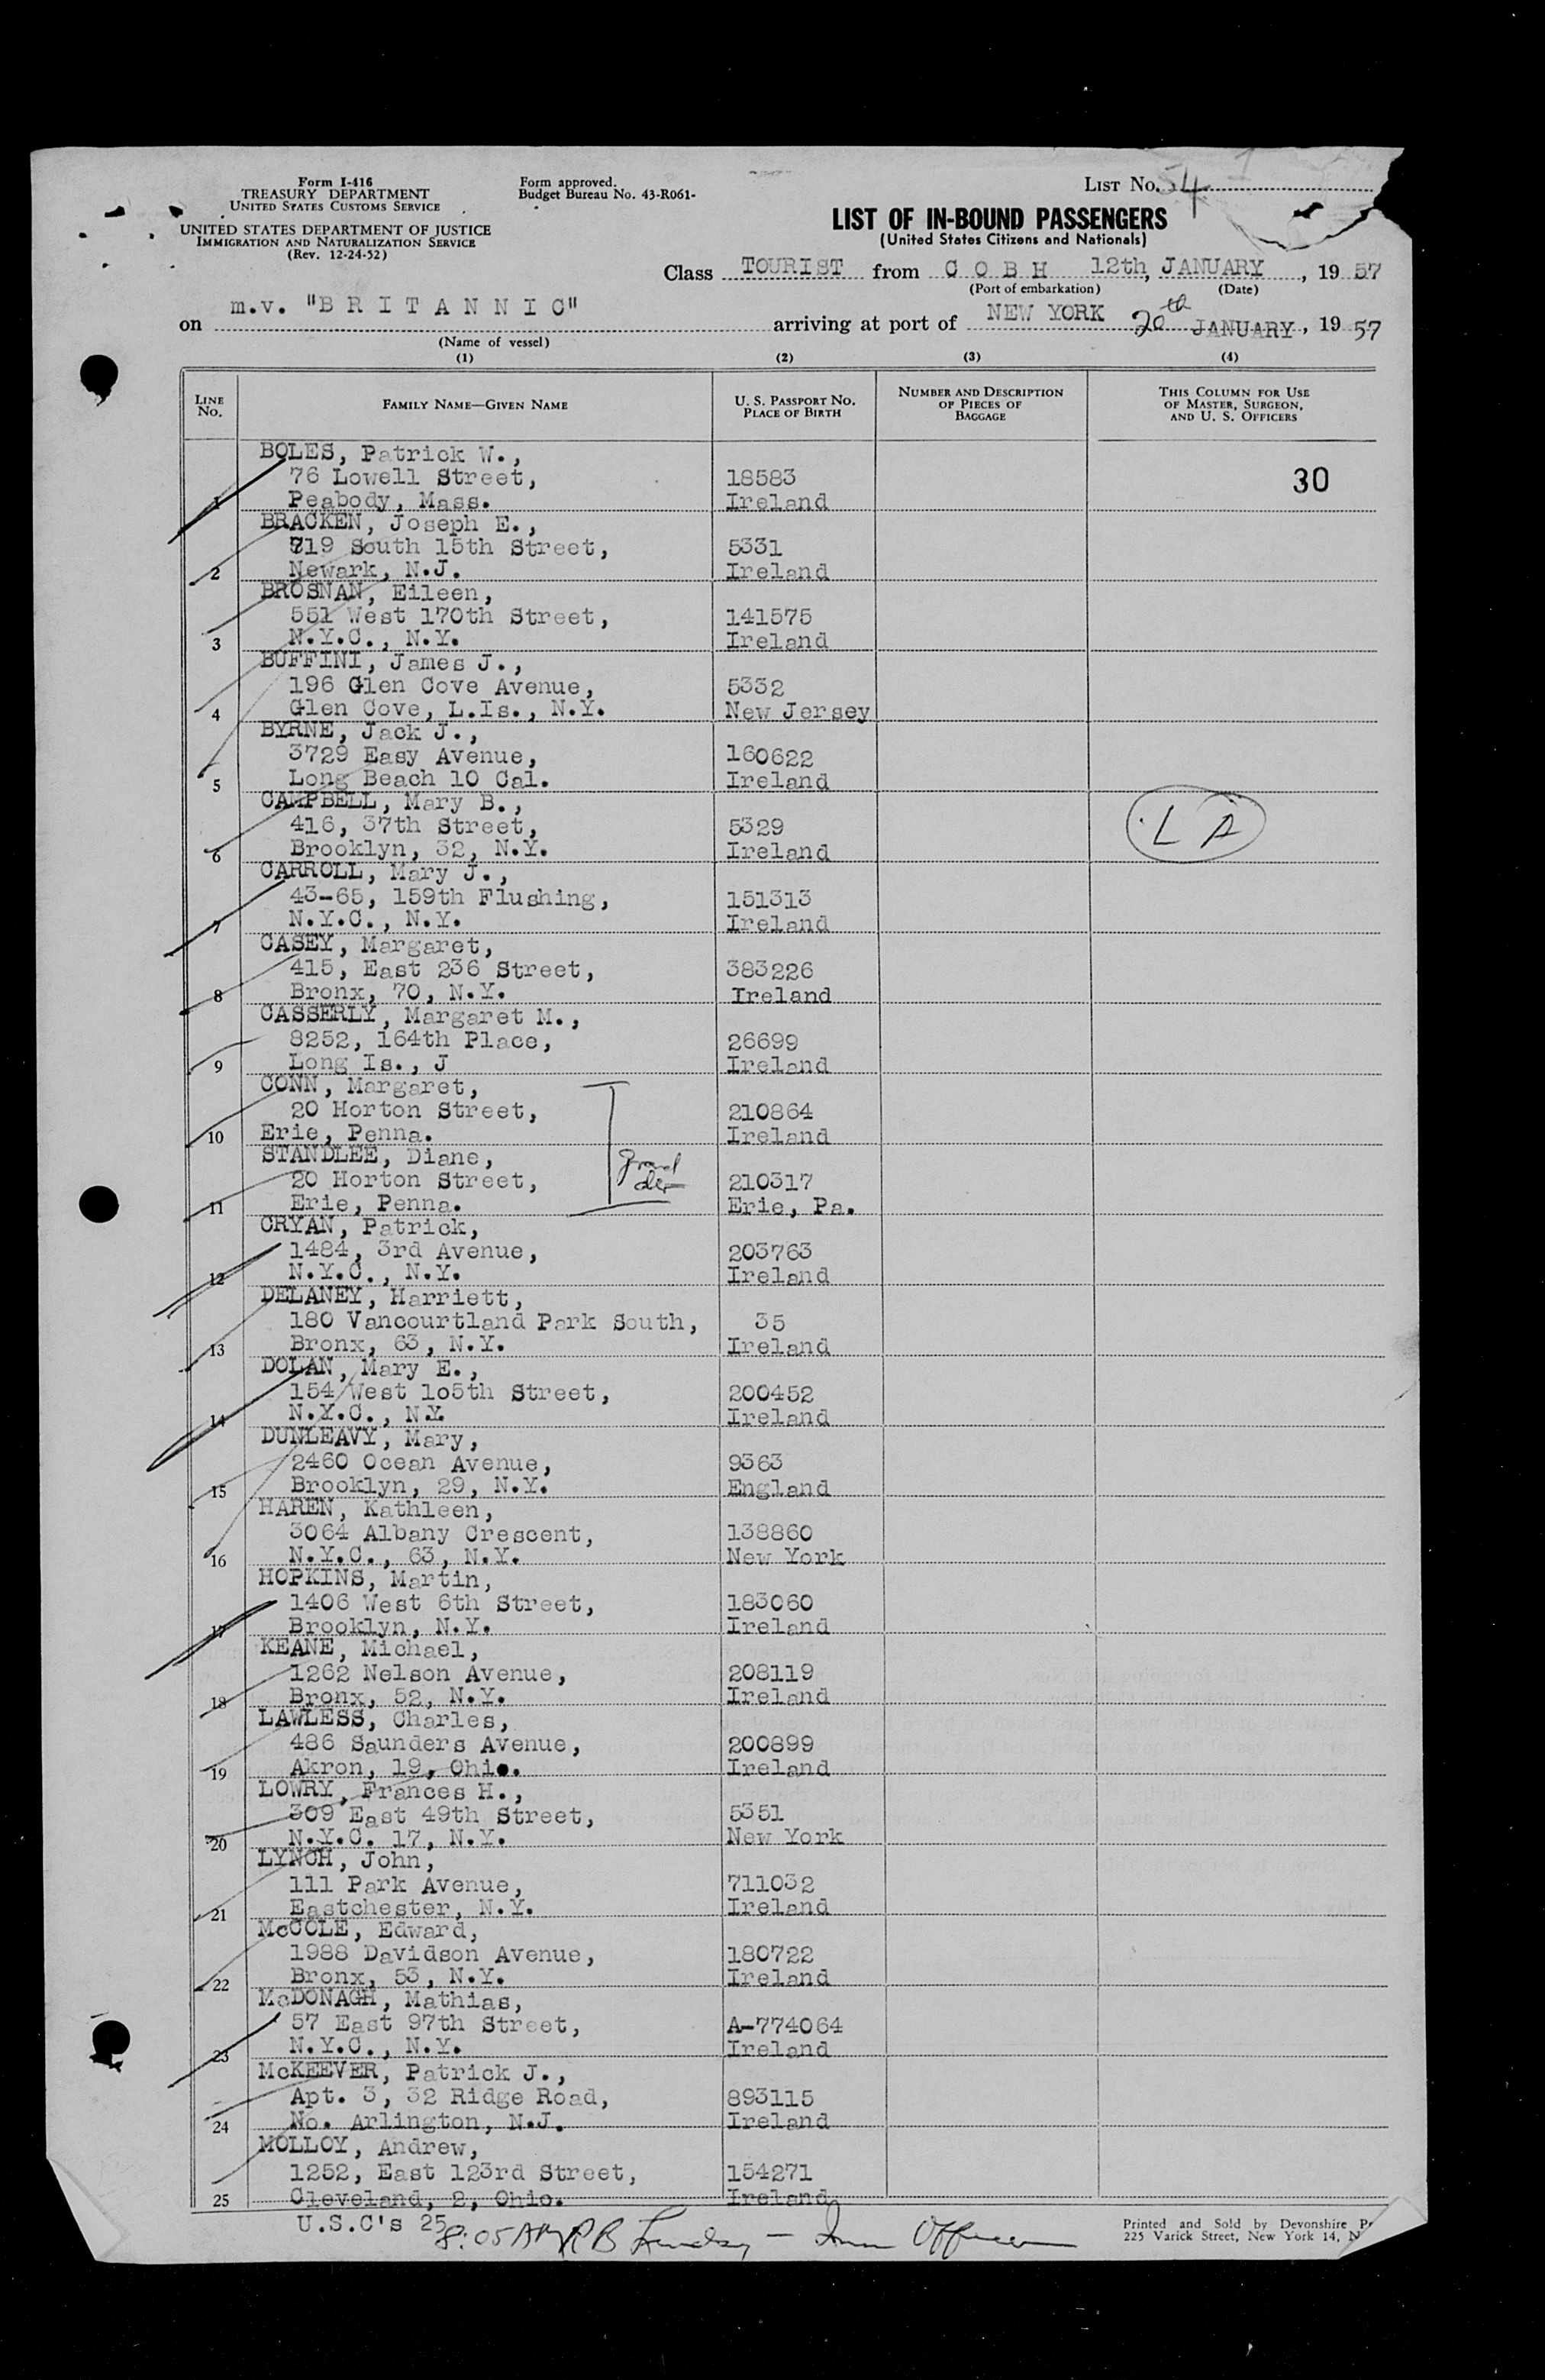 Form I-416
TREASURY DEPARTMENT
UNITED STATES CUSTOMS SERVICE
UNITED STATES DEPARTMENT OF JUSTICE
IMMIGRATION AND NATURALIZATION SERVICE
(Rev. 12-24-52)
Form approved.
Budget Bureau No. 43-R061-
LIST No. 54
LIST OF IN-BOUND PASSENGERS
(United States Citizens and Nationals)
Class TOURIST from C O B H 12th, JANUARY, 19 57
(Port of embarkation) (Date)
on m.v. "B R I T A N N I C" arriving at port of NEW YORK 20th JANUARY, 19 57
(Name of vessel)
(1) (2) (3) (4)
LINE No. FAMILY NAME—GIVEN NAME U. S. PASSPORT No. PLACE OF BIRTH NUMBER AND DESCRIPTION OF PIECES OF BAGGAGE THIS COLUMN FOR USE OF MASTER, SURGEON, AND U. S. OFFICERS
BOLES, Patrick W.,
76 Lowell Street, 18583 30
1 Peabody, Mass. Ireland
BRACKEN, Joseph E.,
719 South 15th Street, 5331
2 Newark, N.J. Ireland
BROSNAN, Eileen,
551 West 170th Street, 141575
3 N.Y.C., N.Y. Ireland
BUFFINI, James J.,
196 Glen Cove Avenue, 5332
4 Glen Cove, L.Is., N.Y. New Jersey
BYRNE, Jack J.,
3729 Easy Avenue, 160622
5 Long Beach 10 Cal. Ireland
CAMPBELL, Mary B.,
416, 37th Street, 5329 L A
6 Brooklyn, 32, N.Y. Ireland
CARROLL, Mary J.,
43-65, 159th Flushing, 151313
7 N.Y.C., N.Y. Ireland
CASEY, Margaret,
415, East 236 Street, 383226
8 Bronx, 70, N.Y. Ireland
CASSERLY, Margaret M.,
8252, 164th Place, 26699
9 Long Is., J Ireland
CONN, Margaret,
20 Horton Street, 210864
10 Erie, Penna. Ireland
STANDLEE, Diane, grand
20 Horton Street, der 210317
11 Erie, Penna. Erie, Pa.
CRYAN, Patrick,
1484, 3rd Avenue, 203763
12 N.Y.C., N.Y. Ireland
DELANEY, Harriett,
180 Vancourtland Park South, 35
13 Bronx, 63, N.Y. Ireland
DOLAN, Mary E.,
154 West 1o5th Street, 200452
14 N.Y.C., N.Y. Ireland
DUNLEAVY, Mary,
2460 Ocean Avenue, 9363
15 Brooklyn, 29, N.Y. England
HAREN, Kathleen,
3064 Albany Crescent, 138860
16 N.Y.C., 63, N.Y. New York
HOPKINS, Martin,
1406 West 6th Street, 183060
17 Brooklyn, N.Y. Ireland
KEANE, Michael,
1262 Nelson Avenue, 208119
18 Bronx, 52, N.Y. Ireland
LAWLESS, Charles,
486 Saunders Avenue, 200899
19 Akron, 19, Ohio. Ireland
LOWRY, Frances H.,
309 East 49th Street, 5351
20 N.Y.C. 17, N.Y. New York
LYNCH, John,
111 Park Avenue, 711032
21 Eastchester, N.Y. Ireland
McCOLE, Edward,
1988 Davidson Avenue, 180722
22 Bronx, 53, N.Y. Ireland
McDONAGH, Mathias,
57 East 97th Street, A-774064
23 N.Y.C., N.Y. Ireland
McKEEVER, Patrick J.,
Apt. 3, 32 Ridge Road, 893115
24 No. Arlington, N.J. Ireland
MOLLOY, Andrew,
1252, East 123rd Street, 154271
25 Cleveland, 2, Ohio. Ireland
U.S.C's 25 8:05 AM RB — Imm Officer
Printed and Sold by Devonshire
225 Varick Street, New York 14, N